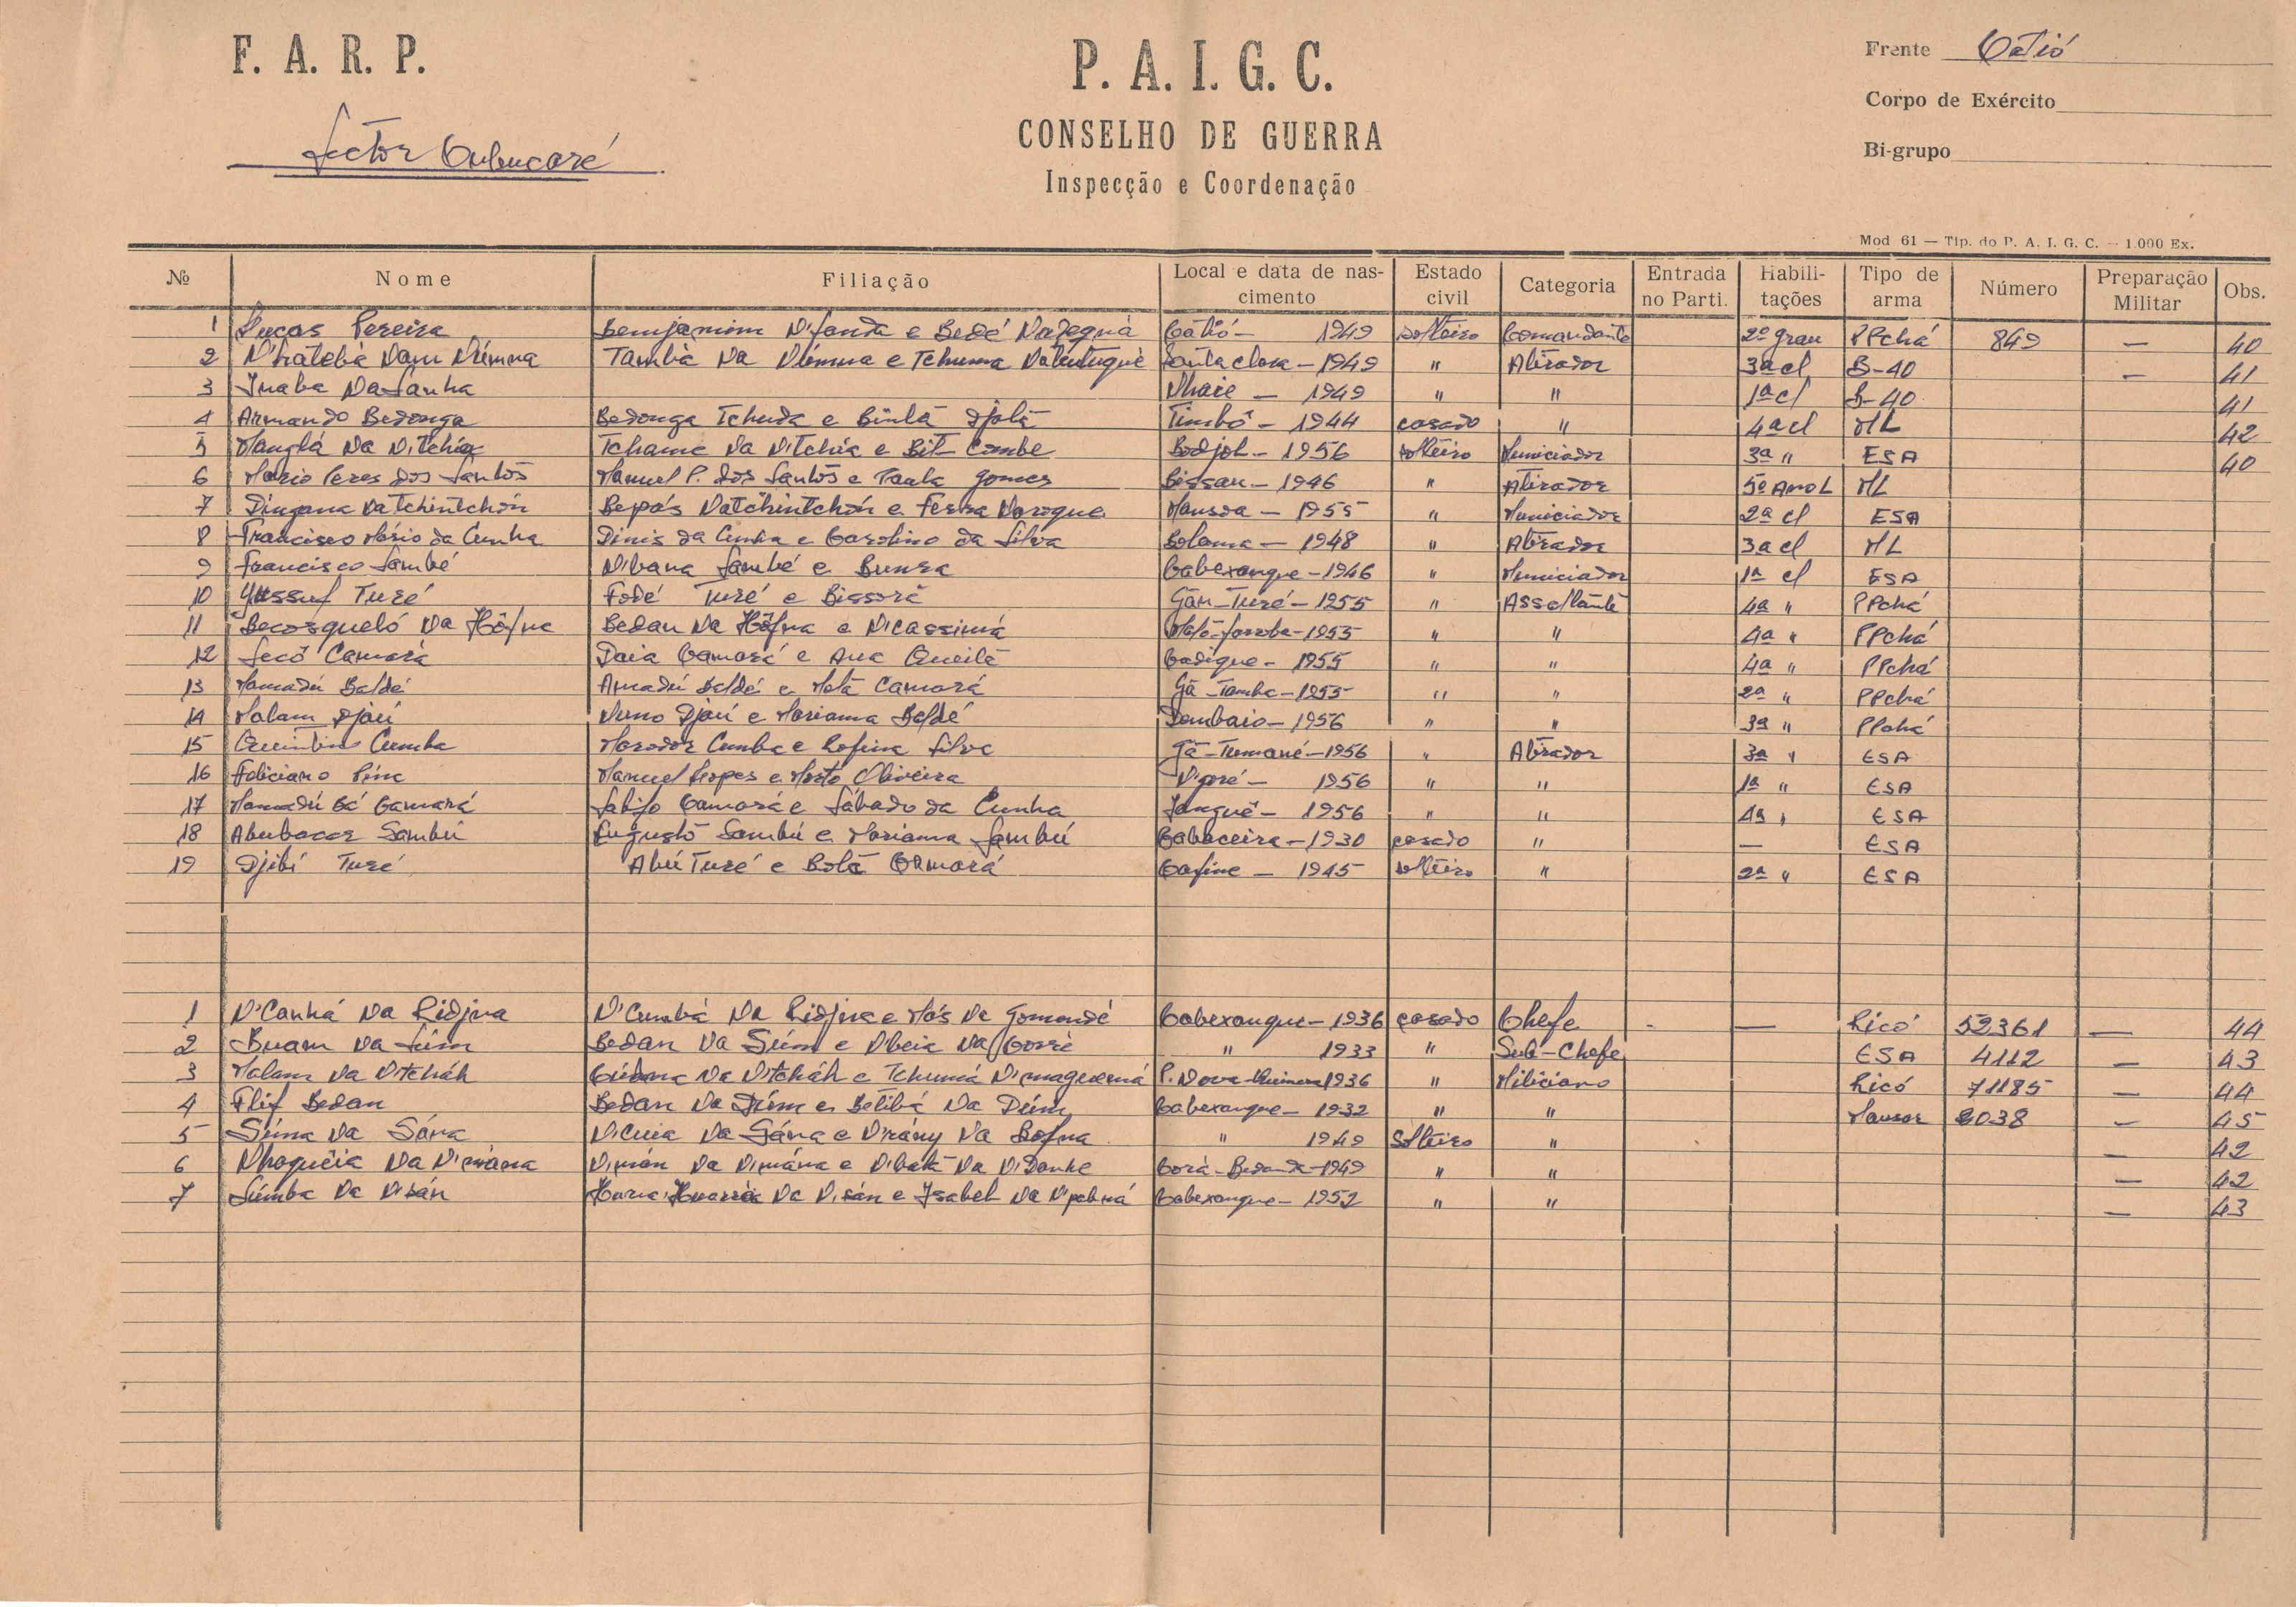 F. A. R. P.
Sector Cubucaré
P. A. I. G. C.
CONSELHO DE GUERRA
Inspecção e Coordenação
Frente Catió
Corpo de Exército
Bi-grupo
Mod 61 — Tip. do P. A. I. G. C. — 1.000 Ex.
Nº Nome Filiação Local e data de nas-cimento Estado civil Categoria Entrada no Parti. Habili-tações Tipo de arma Número Preparação Militar Obs.
1 Lucas Pereira Benjamim N'fanda e Bedé Catió - 1949 solteiro Comandante 2º grau PPchá 849 — 40
2 Tambá Na e Tchuma Santa clara - 1949 " Atirador 3ª cl B-40 — 41
3 Inaba Na Sanha Nhaie - 1949 " " 1ª cl B-40 41
4 Armando Bedonga Bedonga Tchuda e Bintã Djolã Timbó - 1944 casado " 4ª cl ML 42
5 Manglá Na N'Tchia Tchame Na N'Tchia e Bit Combe Bodjol - 1956 solteiro Municiador 3ª " ESA 40
6 Mario Peres dos Santos Manuel P. dos Santos e Paula Gomes Bissau - 1946 " Atirador 5º Ano L ML
7 Dingana Natchintchón Bepás Natchintchón e Mansoa - 1955 " Municiador 2ª cl ESA
8 Francisco Mário da Cunha Dinis da Cunha e Carolino da Silva Bolama - 1948 " Atirador 3ª cl ML
9 Francisco Sambé N'bana Sambé e Bunsa Cabexanque - 1946 " Municiador 1ª cl ESA
10 Yussuf Turé Fodé Turé e Bissorã Gãn-Turé - 1955 " Assaltante 4ª " PPchá
11 Na Hôfna Bedan Na Hôfna e N'cassimá Mato-farroba - 1953 " " 4ª " PPchá
12 Secô Camará Daia Camará e Ana Queitá Cadique - 1955 " " 4ª " PPchá
13 Mamadú Baldé Amadú Baldé e Matã Camará Gã-Tamba - 1955 " " 2ª " PPchá
14 Malam Djaú Nuno Djaú e Mariama Baldé Dembaio - 1956 " " 3ª " PPchá
15 Quintino Cumba Cumba e Rofina Silva Gã-Tumané - 1956 " Atirador 3ª " ESA
16 Feliciano Pina Manuel Lopes e Oliveira N'goré - 1956 " " 1ª " ESA
17 Mamadú Bá Camará Camará e Sábado da Cunha Janguê - 1956 " " 4ª " ESA
18 Abubacar Sambú Eugustô Sambú e Mariama Sambú Cabaceira - 1930 casado " — ESA
19 Djibi Turé Abú Turé e Botã Camará Cafine - 1945 solteiro " 2ª " ESA
1 N'Canhá Na Ridjna N'Cumbá Na Ridjna e Más Na Gomendé Cabexanque - 1936 casado Chefe — Ricó 52361 — 44
2 Buam Na Súm Bedan Na Súm e Na " 1933 " Sub-Chefe ESA 4112 — 43
3 Malam Na N'tcháh Na N'tcháh e Tchumá P. Nova - 1936 " Miliciano Ricó 71185 — 44
4 Flif Bedan Bedan Na Dúm e Belibá Na Dúm Cabexanque - 1932 " " Mauser 8038 — 45
5 Súma Na Sána N'cuia Na Sána e Na Bofna " 1949 Solteiro " 42
6 Na N'mána N'mán Na N'mána e N'batá Na N'Danhe - 1949 " " — 42
7 Súmba Na N'sán Na N'sán e Isabel Na Cabexanque - 1952 " " — 43